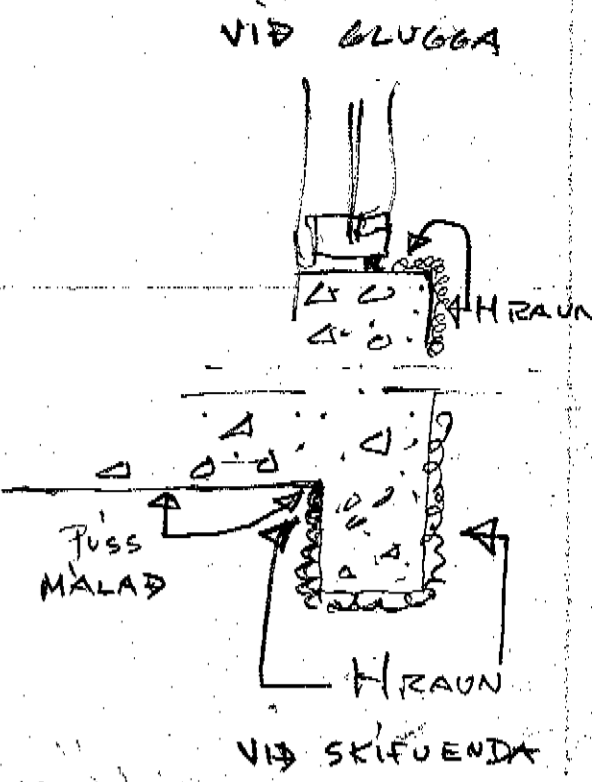 VIÐ GLUGGA
HRAUN
PÚSS
MÁLAÐ
HRAUN
VIÐ SKÍFUENDA